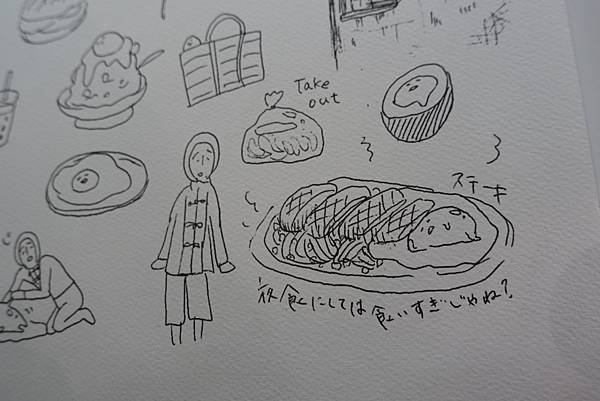 Take
out
ステーキ
夜食にしては食いすぎじゃね?